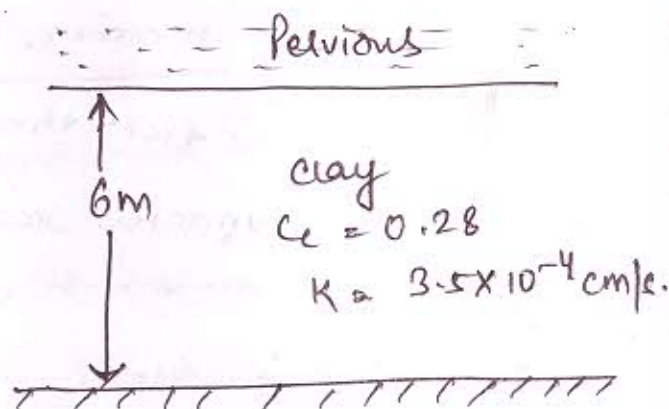 Pervious
6m
clay
Cc = 0.28
K = 3.5X10⁻⁴ cm/s.